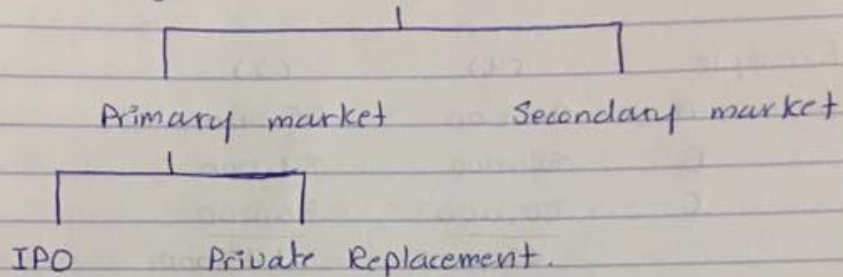 Primary market Secondary market
IPO Private Replacement.